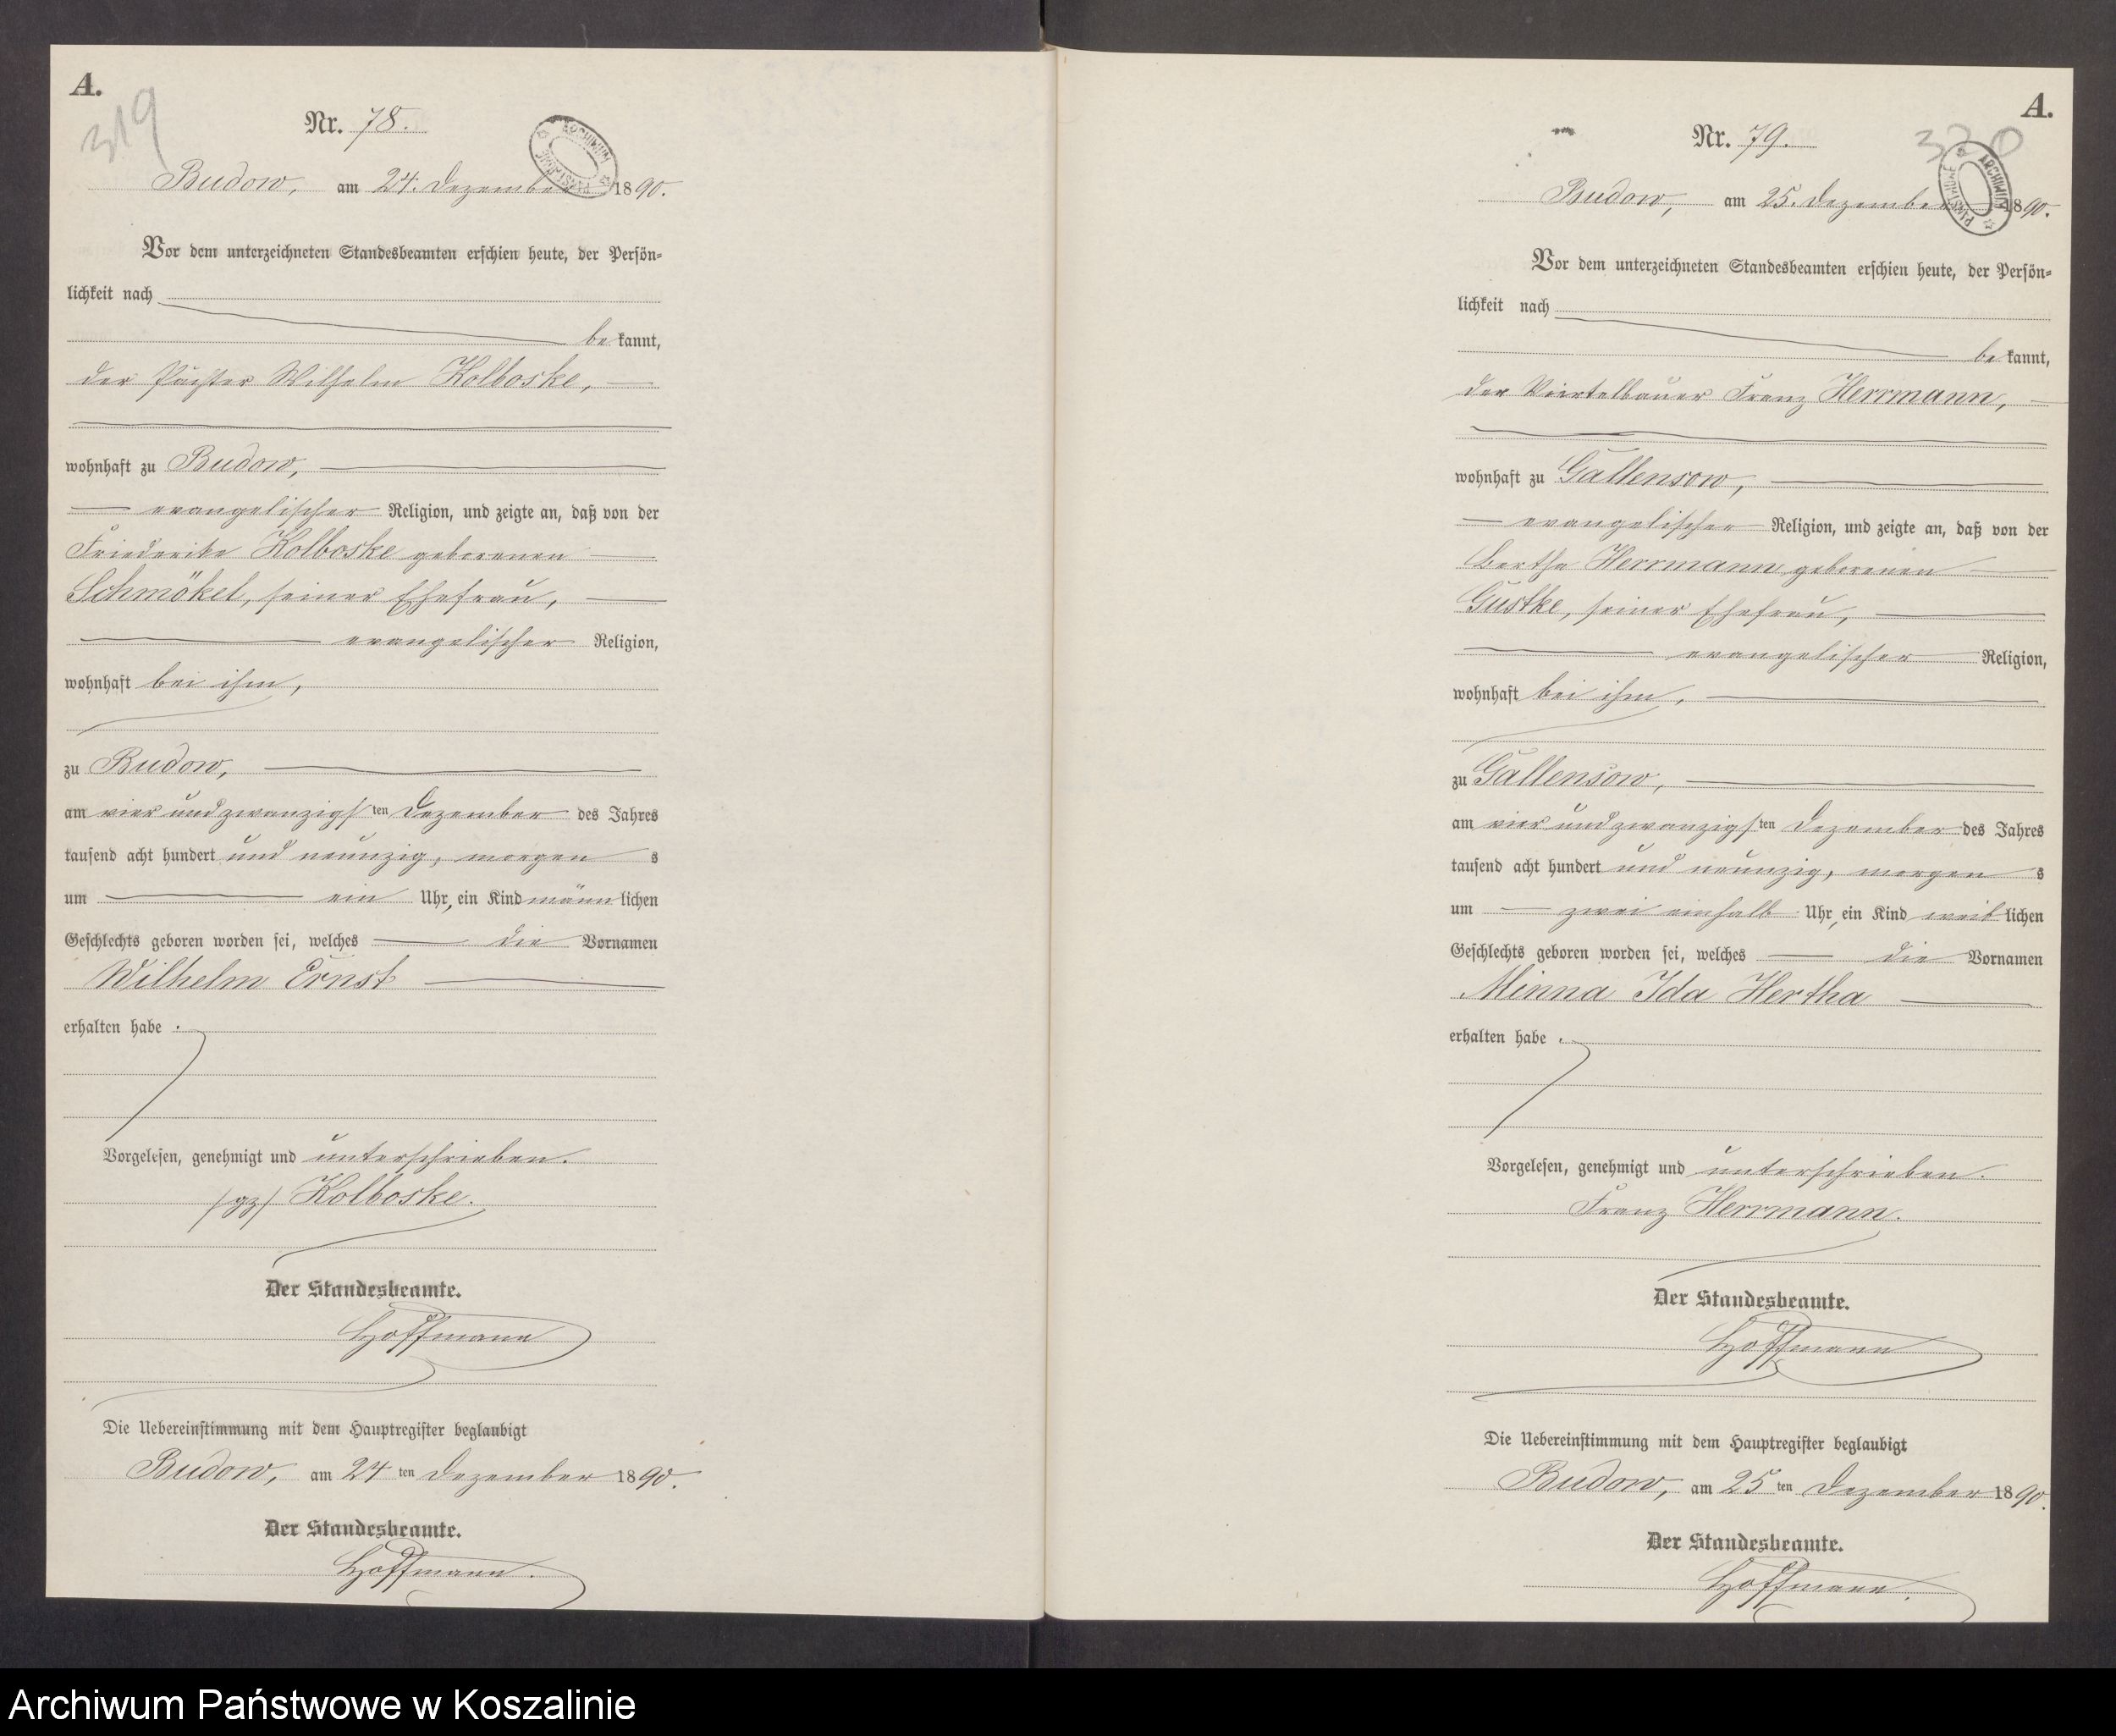 A.
319
Nr. 78.
Budow, am 24. Dezember 1890.
Vor dem unterzeichneten Standesbeamten erschien heute, der Persön-
lichkeit nach
be kannt,
der Pächter Wilhelm Kolboske,
wohnhaft zu Budow,
evangelischer Religion, und zeigte an, daß von der
Friederike Kolboske geborenen
Schmökel, seiner Ehefrau,
evangelischer Religion,
wohnhaft bei ihm,
zu Budow,
am vier und zwanzigsten Dezember des Jahres
tausend acht hundert und neunzig, morgen s
um ein Uhr, ein Kind männ lichen
Geschlechts geboren worden sei, welches die Vornamen
Wilhelm Ernst
erhalten habe.
Vorgelesen, genehmigt und unterschrieben.
/gz/ Kolboske.
Der Standesbeamte.
Hoffmann
Die Uebereinstimmung mit dem Hauptregister beglaubigt
Budow, am 24 ten Dezember 1890.
Der Standesbeamte.
Hoffmann.
A.
320
Nr. 79.
ARCHIWUM PAŃSTWOWE
Budow, am 25. Dezember 1890.
Vor dem unterzeichneten Standesbeamten erschien heute, der Persön-
lichkeit nach
be kannt,
der Viertelbauer Franz Herrmann,
wohnhaft zu Gallensow,
evangelischer Religion, und zeigte an, daß von der
Bertha Herrmann geborenen
Gustke, seiner Ehefrau,
evangelischer Religion,
wohnhaft bei ihm,
zu Gallensow,
am vier und zwanzigsten Dezember des Jahres
tausend acht hundert und neunzig, morgen s
um zwei einhalb Uhr, ein Kind weib lichen
Geschlechts geboren worden sei, welches die Vornamen
Minna Ida Hertha
erhalten habe.
Vorgelesen, genehmigt und unterschrieben.
Franz Herrmann.
Der Standesbeamte.
Hoffmann
Die Uebereinstimmung mit dem Hauptregister beglaubigt
Budow, am 25 ten Dezember 1890.
Der Standesbeamte.
Hoffmann.
Archiwum Państwowe w Koszalinie